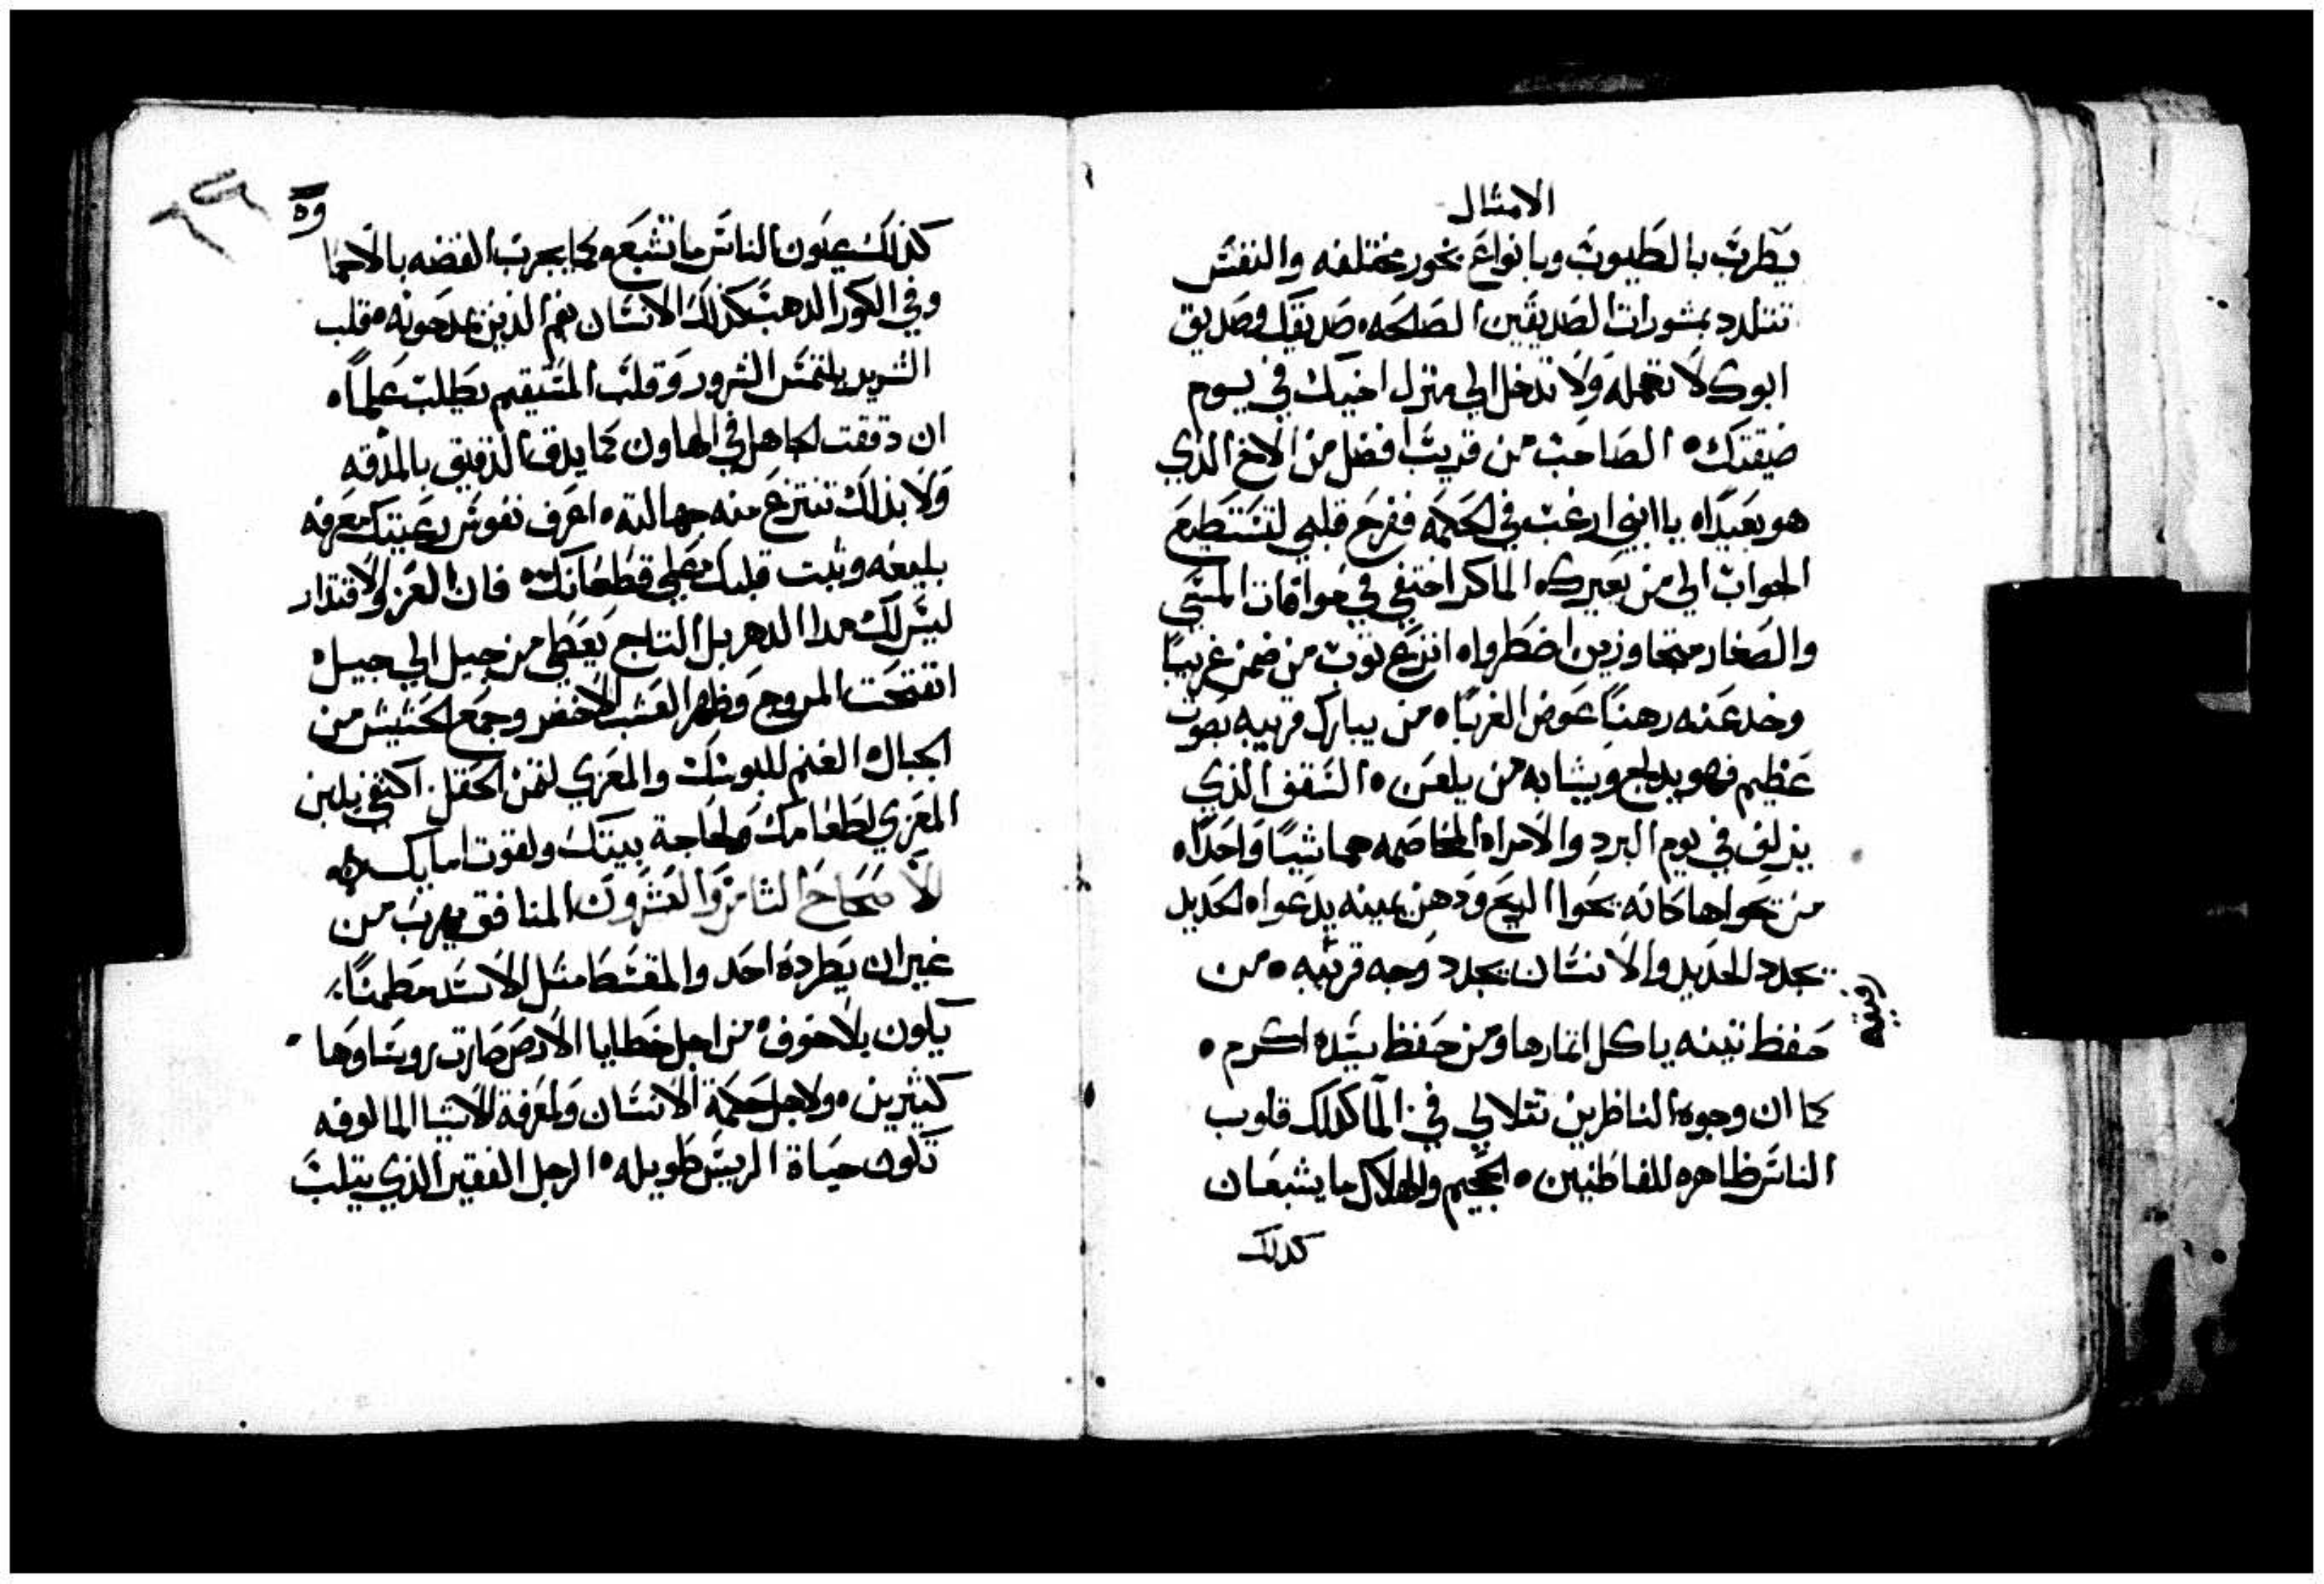 الامثال
يطرب بالطيوب وبانواع بخور مختلفه والنفس
تتلدد بمشورات الصديقين الصلحه٠ صديقك وصديق
ابوك لا تهمله ولا تدخل الي منزل اخيك في يوم
ضيقتك٠ الصاحب من قريب افضل من الاخ الذي
هو بعيدا٠ يا ابني ارغب في الحكمه ففرج قلبي لتستطيع
الجواب الي من يعيرك٠ الماكر اختفي في موافات المتتي
والصغار متجاوزين اضطروا٠ انزع ثوب من ضمن غريبا
وخد عنه رهنا عوض الغربا٠ من يبارك قريبه بصوت
عظيم فهو يدلج ويشابه من يلعن٠ السقف الذي
يزلف في يوم البرد والامراه المخاصمه هما شيا واحدا٠
من يحواها كانه يحوا الريح ودهن يمينه يدعوا٠ الحديد
يحدد الحديد والانسان يحدد وجه قريبه٠ من
حفظ تينه ياكل اتمارها ومن حفظ سيده اكرم٠
كما ان وجوه الناظرين تتلالي في الما كدلك قلوب
الناس ظاهره للفاطنين٠ الجحيم والهلاك ما يشبعان
كدلك
كذلك عيون الناس ما تشبع٠ كما يجرب الفضه بالاحما
وفي الكور الدهب كذلك الانسان بفم الذين يمدحونه٠ قلب
الشرير يلتمس الشرور وقلب المستقيم يطلب علما٠
ان دققت الجاهل في الهاون كما يدق الدقيق بالمدقه
ولا بذلك تنتزع منه جهالته٠ اعرف نفوس رعيتك معرفه
بليغه وثبت قلبك علي قطعانك٠ فان العز والاقتدار
ليس لك مدا الدهر بل التاج يعطي من جيل الي جيل٠
انفتحت المروج وظهر العشب الاخضر وجمع الحشيش من
الجبال٠ الغنم للبوسك والمعزي لثمن الحقل. اكتفي بلبن
المعزي لطعامك ولحاجة بيتك ولقوت امايك
الاصحاح الثامن والعشرون المنافق يهرب من
غير ان يطرده احد والمقسط مثل الاسد مطمنا
يكون بلا خوف٠ من اجل خطايا الارض صارت روساوها
كثيرين٠ ولاجل حكمة الانسان ولمعرفة الاشيا المالوفه
تكون حياة الريس طويله٠ الرجل الفقير الذي يتلب